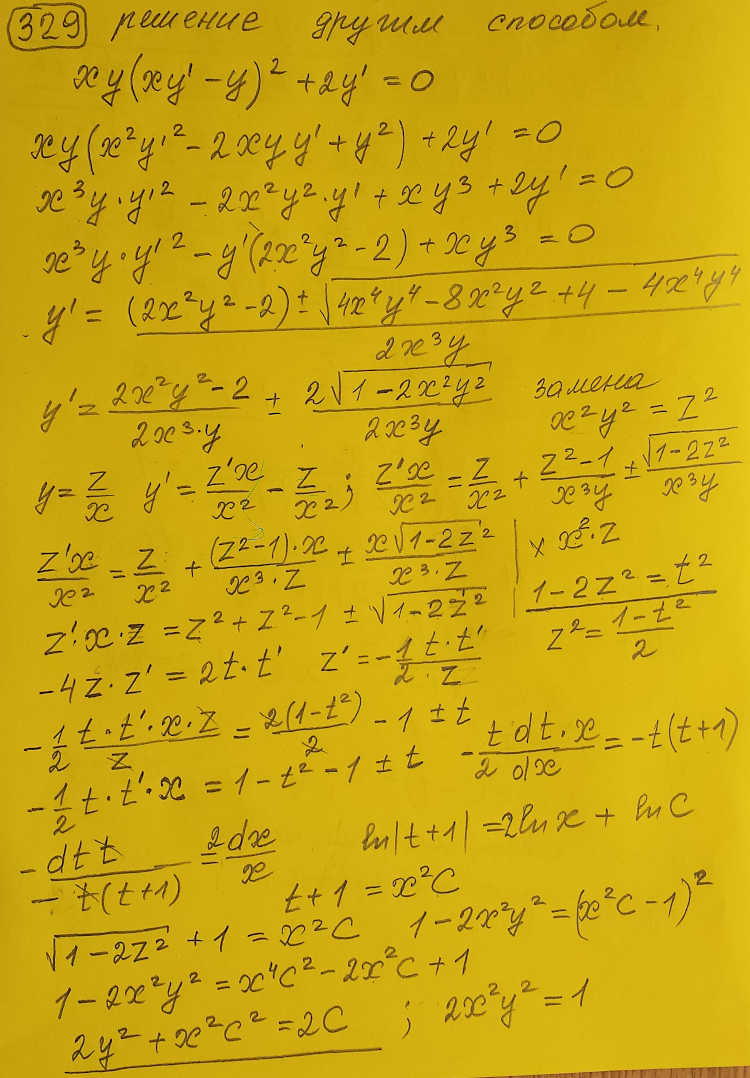 329 решение другим способом.
xy(xy' - y)² + 2y' = 0
xy(x²y'² - 2xyy' + y²) + 2y' = 0
x³y·y'² - 2x²y²·y' + xy³ + 2y' = 0
x³y·y'² - y'(2x²y² - 2) + xy³ = 0
y' = ((2x²y² - 2) ± √(4x⁴y⁴ - 8x²y² + 4 - 4x⁴y⁴)) / (2x³y)
y' = (2x²y² - 2)/(2x³·y) ± (2√(1 - 2x²y²))/(2x³y) замена x²y² = z²
y = z/x y' = z'x/x² - z/x²; z'x/x² = z/x² + (z² - 1)/(x³y) ± √(1 - 2z²)/(x³y)
z'x/x² = z/x² + ((z² - 1)·x)/(x³·z) ± (x√(1 - 2z²))/(x³·z) | × x²·z
z'·x·z = z² + z² - 1 ± √(1 - 2z²) | 1 - 2z² = t²
-4z·z' = 2t·t' z' = -(1/2) (t·t')/z z² = (1 - t²)/2
-(1/2) (t·t'·x·z)/z = (2(1 - t²))/2 - 1 ± t
-(1/2) t·t'·x = 1 - t² - 1 ± t -(t dt·x)/(2 dx) = -t(t+1)
-(dt t)/(-t(t+1)) = 2dx/x ln|t+1| = 2lnx + lnC
t + 1 = x²C
√(1 - 2z²) + 1 = x²C 1 - 2x²y² = (x²C - 1)²
1 - 2x²y² = x⁴C² - 2x²C + 1
2y² + x²C² = 2C ; 2x²y² = 1